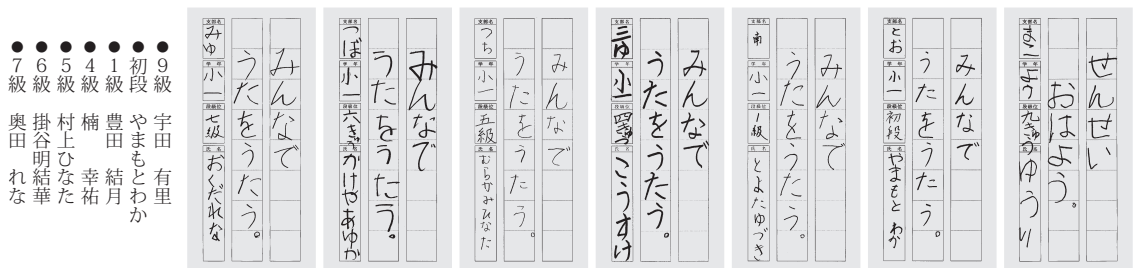 せんせい
おはよう。
支部名 まこ 学年 よう 段級位 九きゅう 氏名 ゆうり
みんなで
うたをうたう。
支部名 とお 学年 小一 段級位 初段 氏名 やまもと わか
みんなで
うたをうたう。
支部名 南 学年 小一 段級位 1級 氏名 とよたゆづき
みんなで
うたをうたう。
支部名 三ゆ 学年 小一 段級位 四きゅう 氏名 こうすけ
みんなで
うたをうたう。
支部名 つち 学年 小一 段級位 五級 氏名 むらかみひなた
みんなで
うたをうたう。
支部名 つば 学年 小一 段級位 六きゅう 氏名 かけやあゆか
みんなで
うたをうたう。
支部名 みゆ 学年 小一 段級位 七級 氏名 おくだれな
●9級 宇田 有里
●初段 やまもとわか
●1級 豊田 結月
●4級 楠 幸祐
●5級 村上ひなた
●6級 掛谷明結華
●7級 奥田 れな